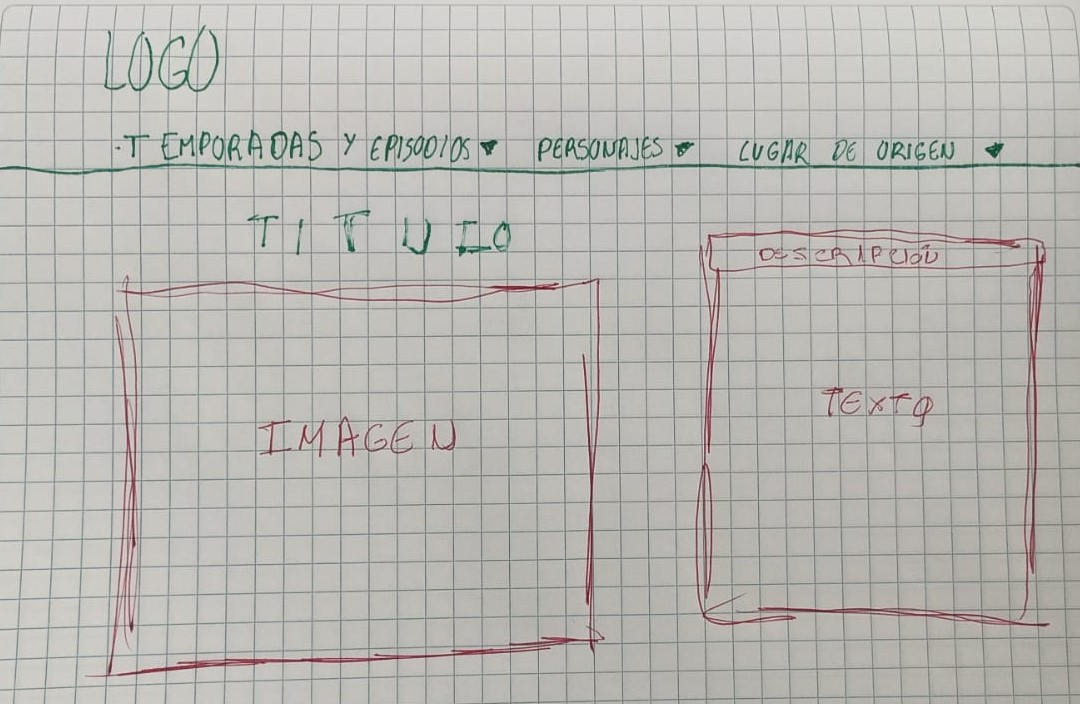 LOGO
·TEMPORADAS Y EPISODIOS PERSONAJES LUGAR DE ORIGEN
TITULO
DESCRIPCIÓN
IMAGEN
TEXTO